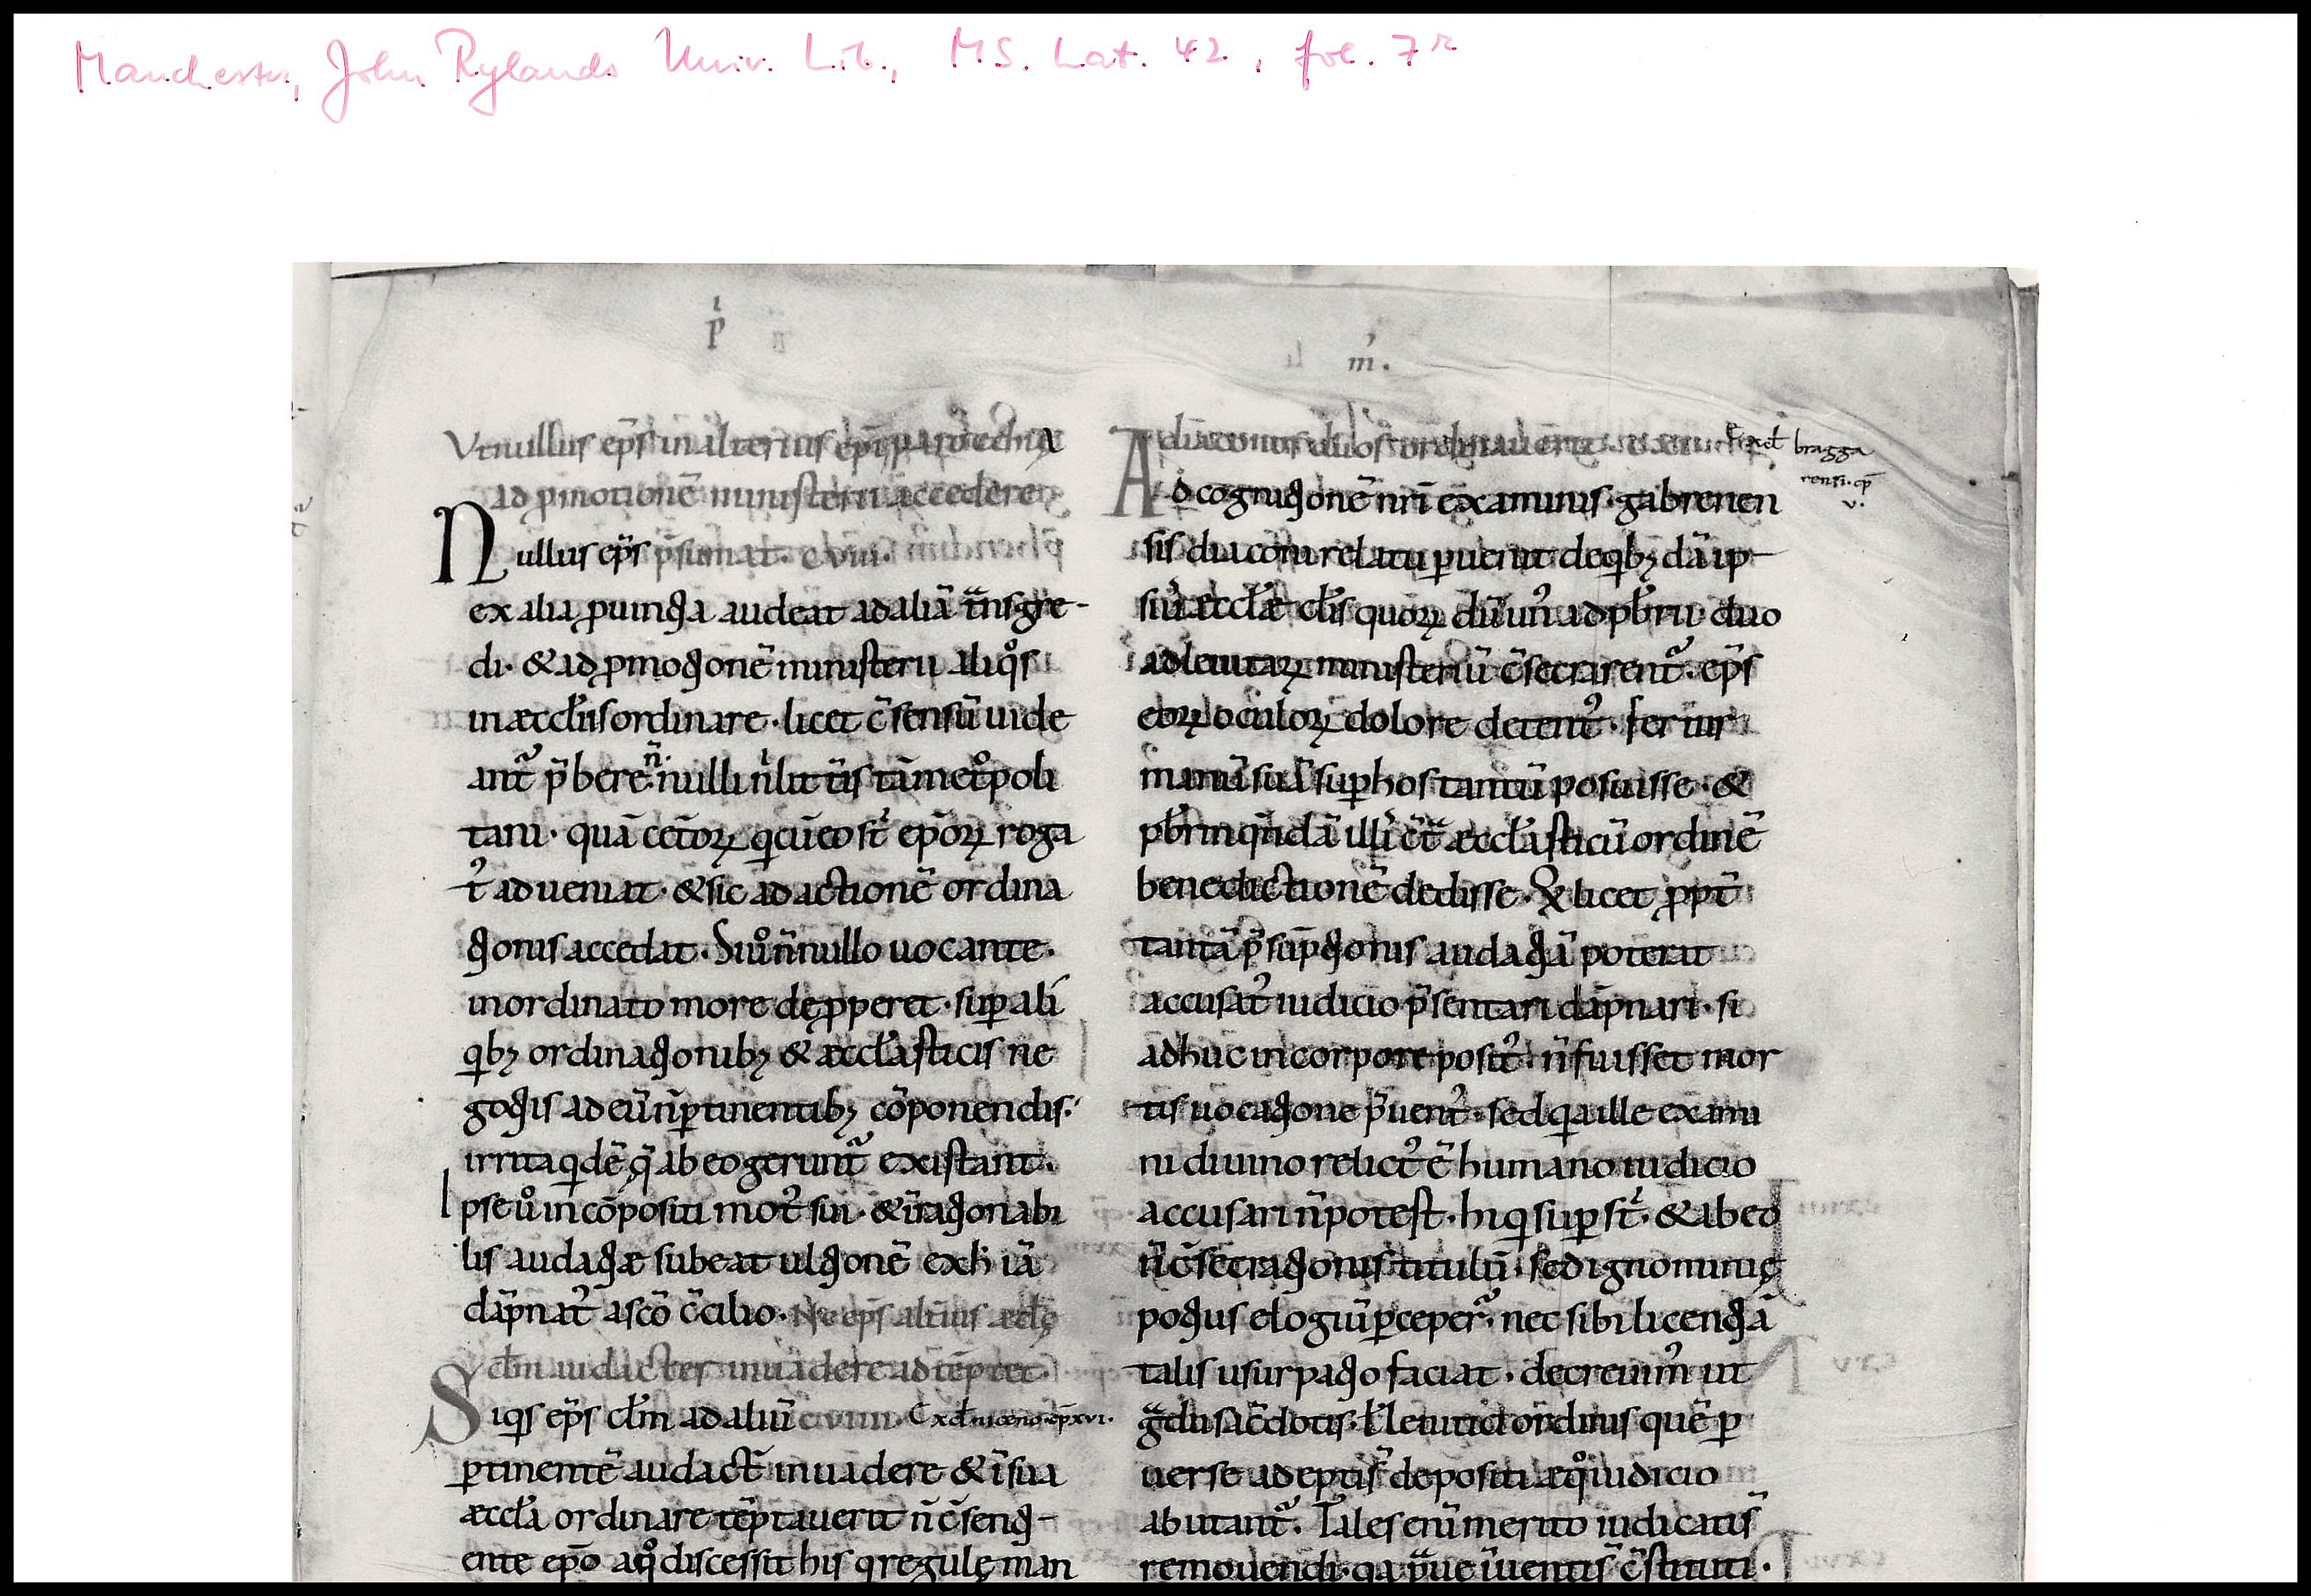 Manchester, John Rylands Univ. Lib., MS. Lat. 42, fol. 7r
p
m.
Vt nullus ep̄s in alterius ep̄i parrochia
ad p̱motionē ministerii accedere
Nullus ep̄s p̄sumat. cviii.
ex alia ꝓuintia audeat ad aliā tⁿsgre-
di. & ad ꝓmotionē ministerii aliqͦs
in æccl̄iis ordinare. licet c̄sensū uide
ant᷑ p̄bere. n̄. nulli n̄ litt̄is tām metͦpoli
tani. quā cet̄oꝝ q̱ cū eo st̄ ep̄oꝝ roga
t᷒ adueniat. & sic ad actionē ordina
tionis accedat. Si uͦ n̄ nullo uocante.
inordinato more deꝓperet. suꝑ ali
qbꝫ ordinationibꝫ & æccl̄asticis ne
gotiis ad eū n̄ ꝑtinentibꝫ cōponendis.
irrita qdē q̄ ab eo gerunt᷑ existant.
Ipse uͦ incōpositi mot᷒ sui. & irrationabi
lis audatiæ subeat ultionē ex h̄ iā
dāpnat᷒ a sc̄o c̄cilio. Ne ep̄s alterius eccl̄ę
cl̄m audacter inuadere adtēptet.
Siqs ep̄s cl̄m ad aliū cviiii. Ex c̄ niceno. cp̄ xvi.
ꝑtinentē audact̄ inuadere & ī sua
æccl̄a ordinare tēptauerit n̄ c̄senti-
ente ep̄o a qͦ discessit his q regulę man
A diaconus aliqͦs ordinauerit. c. x. Ex c̄ bragga
rensi. cp̄
v.
Ad cognitionē nr̄i examinis. gabrenen
sis diaconi relatu ꝑuenit de qbꝫ dā ip-
si᷒ æccl̄æ cl̄is quoꝝ dū un᷒ ad p̄br̄ii. duo
ad leuitaꝝ ministeriū c̄secrarent᷑. ep̄s
eoꝝ oculoꝝ dolore detent᷒. fertur
manū suā suꝑ hos tantū posuisse. &
p̄br̄m qndā illis c̄t̄ æccl̄asticū ordinē
benedictionē dedisse. Q̱ licet ꝓpt̄
tantā p̄sūptionis audatiā poterat
accusat᷒ iudicio p̄sentari dāpnari. si
adhuc in corpore posit᷒. n̄ fuisset mor
tis uocatione p̄uent᷒. sed qa ille exami
ni diuino relict᷒ ē humano iudicio
accusari n̄ potest. hi q suꝑst̄. & ab eo
n̄ c̄secrationis titulū. sed ignominię
potius elogiū ꝑceper᷑. ne c̄ sibi licentiā
talis usurpatio faciat. decreuim᷒ ut
gͣdu sac̄dotis. ł leuitici ordinis quē ꝑ
uerse adepti s̄ depositi æqͦ iudicio
abutant᷑. Tales enī merito iudicati s̄
remouendi. qa pͣue īuenti s̄ c̄stituti.